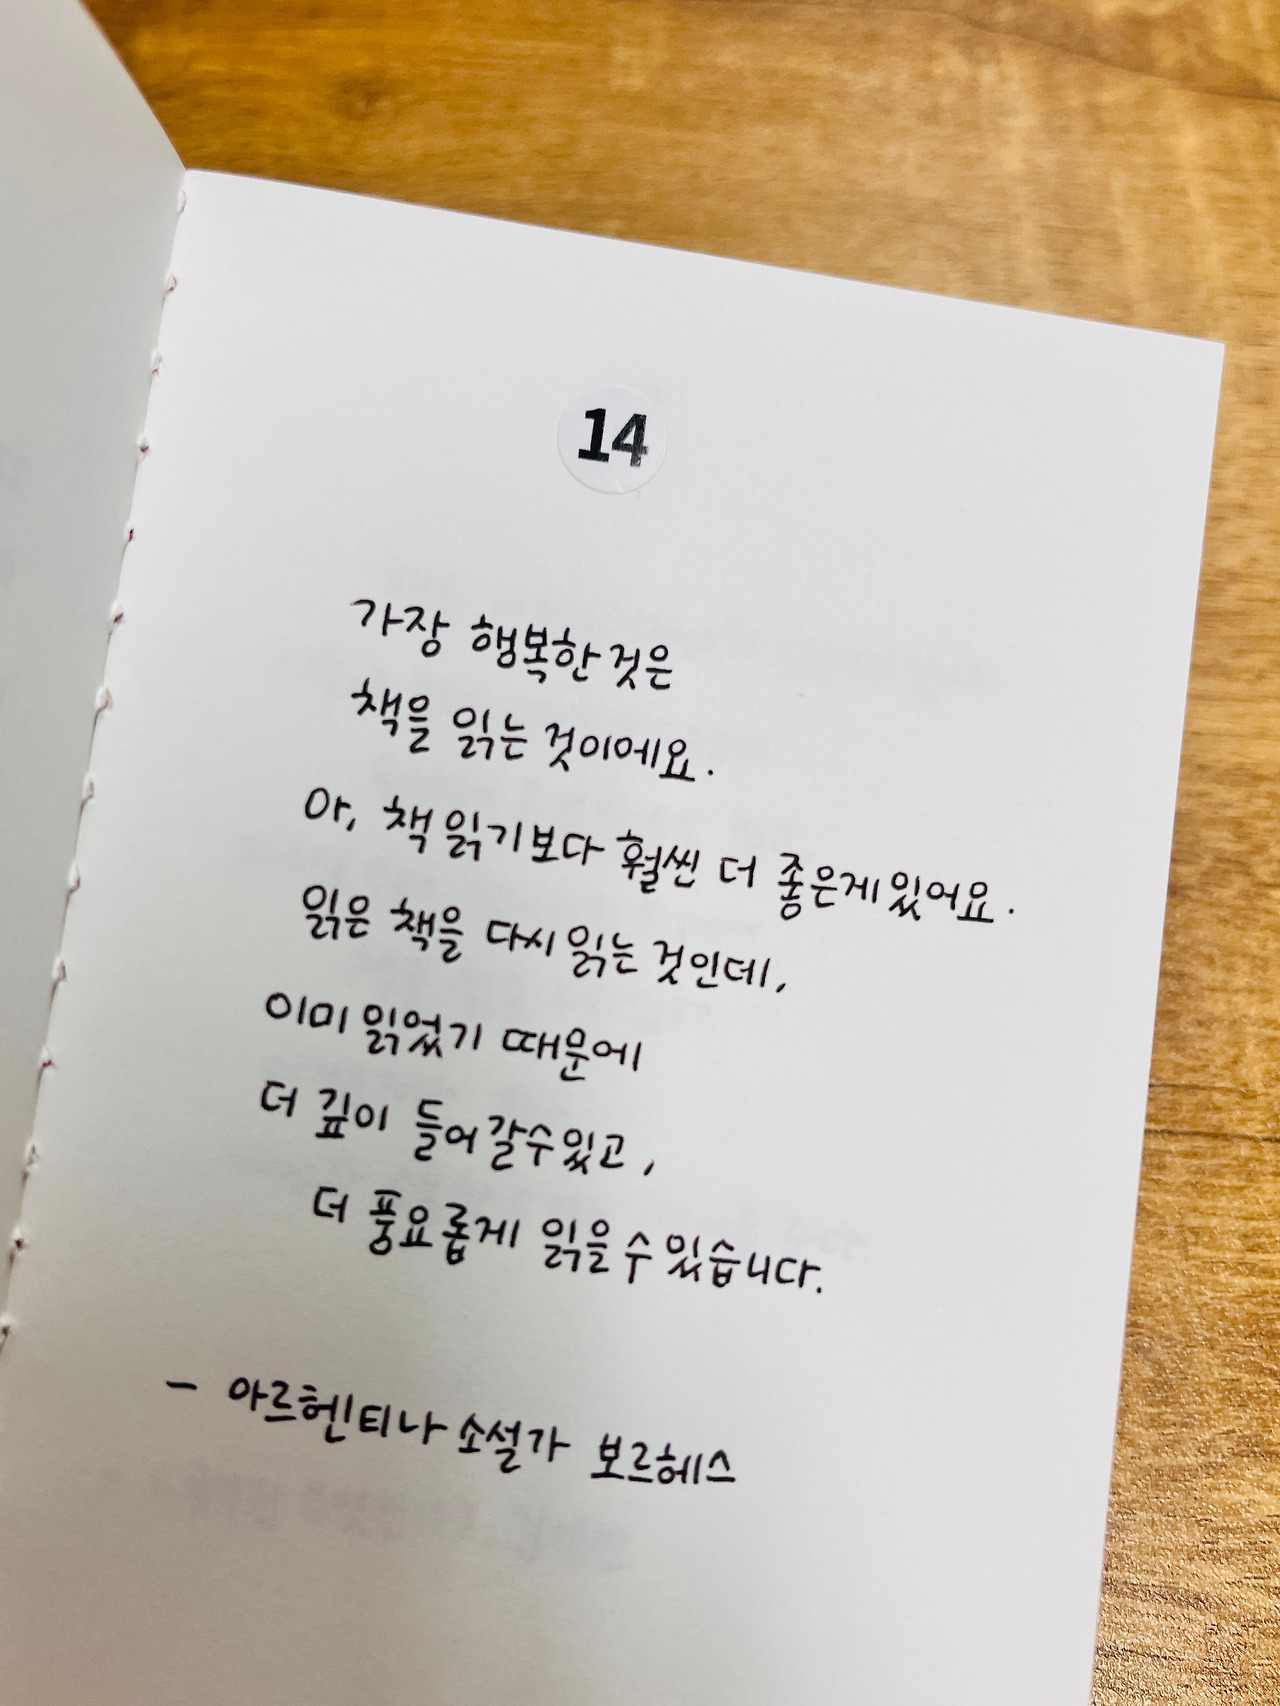 14
가장 행복한 것은
책을 읽는 것이에요.
아, 책 읽기보다 훨씬 더 좋은게 있어요.
읽은 책을 다시 읽는 것인데,
이미 읽었기 때문에
더 깊이 들어갈 수 있고,
더 풍요롭게 읽을 수 있습니다.
- 아르헨티나 소설가 보르헤스